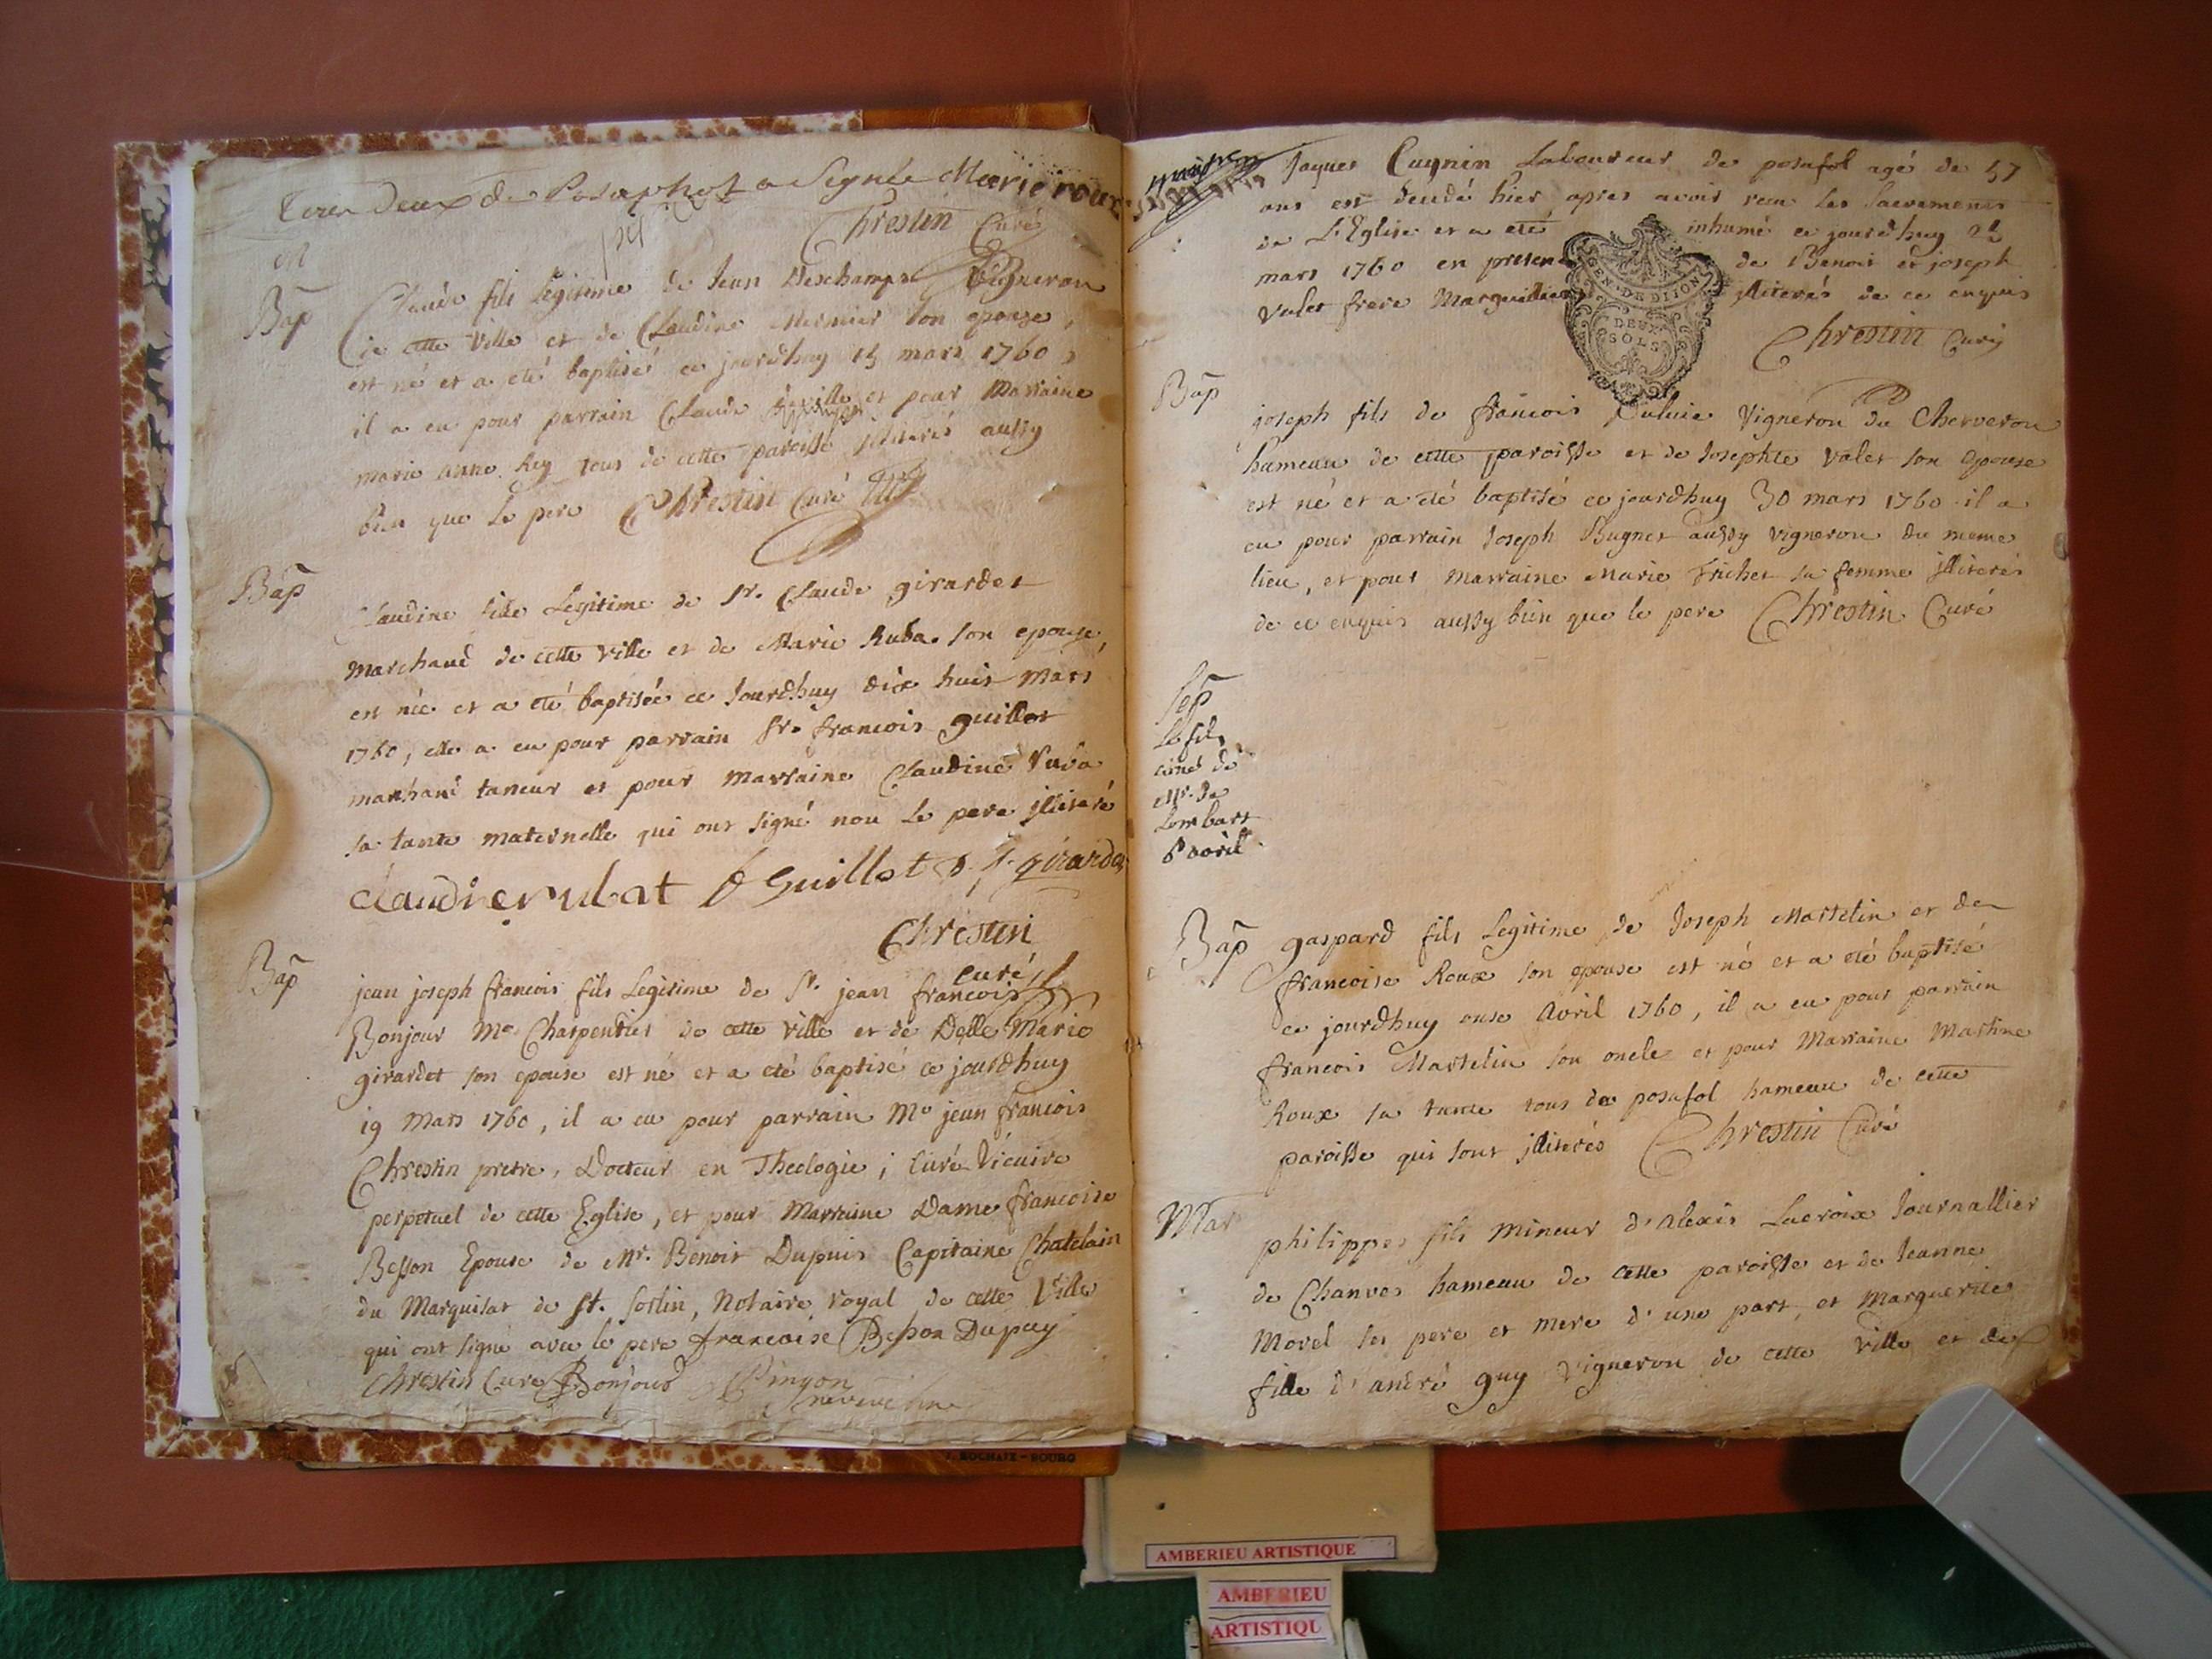 deux de Posaphol a Signée Marie roux
Chrestin Curé
Bap
Claude fils Legitime de Jean Deschamps Vigneron
de cette Ville et de Claudine Mermier son epouse,
est né et a eté baptisé ce jourdhuy 15 mars 1760,
il a eu pour parrain Claude et pour Marraine
marie anne Rey tous de cette paroisse illiterés aussy
bien que le pere Chrestin Curé
Bap
Claudine fille Legitime de Sr. Claude girardet
marchand de cette ville et de Marie Ruba son epouse,
est née et a eté baptisée ce Jourdhuy dix huit Mars
1760, elle a eu pour parrain Sr. francois guillot
marchand taneur et pour marraine Claudine Ruba
sa tante maternelle qui ont signé non le pere illiteré
claudine rubat f Guillot girardet
Chrestin
curé
Bap
jean joseph francois fils Legitime de Sr. jean francois
Bonjour Me Charpentier de cette ville et de Delle Marie
girardet son epouse est né et a eté baptisé ce jourdhuy
19 Mars 1760, il a eu pour parrain Me jean francois
Chrestin pretre, Docteur en Theologie, Curé Vicaire
perpetuel de cette Eglise, et pour Marraine Dame francoise
Besson Epouse de Mr. Benoit Dupuis Capitaine Chatelain
du Marquisat de St. Sorlin, Notaire royal de cette Ville
qui ont signé avec le pere francoise Besson Dupuy
Chrestin Cure Bonjour
ROCHAIX - BOURG
Jaques Cugnin Laboureur de posafol agé de 57
ans est decedé hier apres avoir recu les Sacremens
de L'Eglise et a eté inhumé ce jourdhuy
mars 1760 en presence de Benoit et joseph
Valet frere Marguilliers illiterés de ce enquis
GEN. DE DIJON
DEUX
SOLS
Chrestin Curé
Bap
joseph fils de francois Vigneron du Cherveron
hameau de cette paroisse et de Josephte Valet son Epouse
est né et a eté baptisé ce jourdhuy 30 mars 1760 il a
eu pour parrain Joseph Bugnet aussy vigneron du meme
lieu, et pour marraine Marie Trichet sa femme illiterés
de ce enquis aussy bien que le pere Chrestin Curé
Sep
Le fils
ainé de
Mr. de
Lombart
6 avril
Bap
gaspard fils Legitime de Joseph Martelin et de
francoise Roux son epouse est né et a eté baptisé
ce jourdhuy onse Avril 1760, il a eu pour parrain
francois Martelin son oncle et pour Marraine Martine
Roux sa tante tous de posafol hameau de cette
paroisse qui sont illiterés Chrestin Curé
Mar
philippes fils mineur d'alexis Lacroix Journallier
de Chanves hameau de cette paroisse et de Jeanne
Morel ses pere et mere d'une part, et Marguerite
fille d'andré guy Vigneron de cette Ville et de
AMBERIEU ARTISTIQUE
AMBERIEU
ARTISTIQU